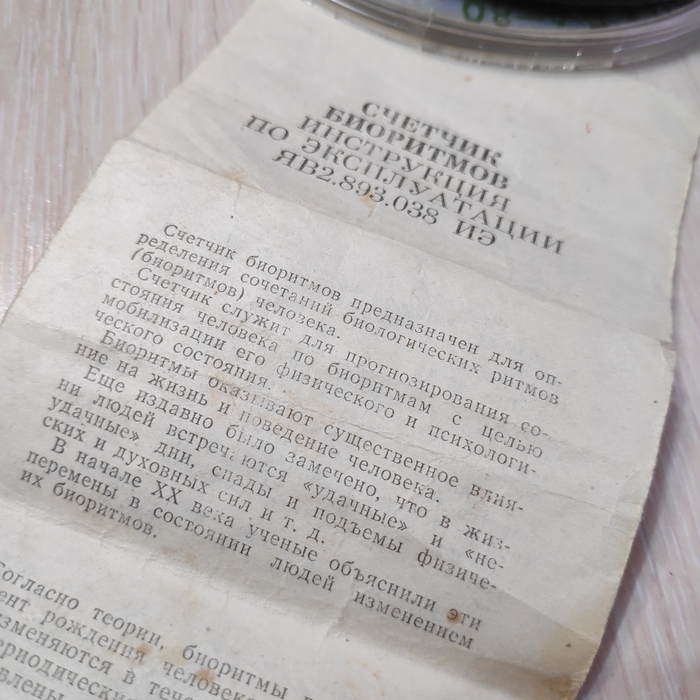 СЧЕТЧИК
БИОРИТМОВ
ИНСТРУКЦИЯ
ПО ЭКСПЛУАТАЦИИ
ЯВ2.893.038 ИЭ
Счетчик биоритмов предназначен для оп-
ределения сочетаний биологических ритмов
(биоритмов) человека.
Счетчик служит для прогнозирования со-
стояния человека по биоритмам с целью
мобилизации его физического и психологи-
ческого состояния.
Биоритмы оказывают существенное влия-
ние на жизнь и поведение человека.
Еще издавно было замечено, что в жиз-
ни людей встречаются «удачные» и «не-
удачные» дни, спады и подъемы физиче-
ских и духовных сил и т. д.
В начале XX века ученые объяснили эти
перемены в состоянии людей изменением
их биоритмов.
Согласно теории, биоритмы
рождения человека
в